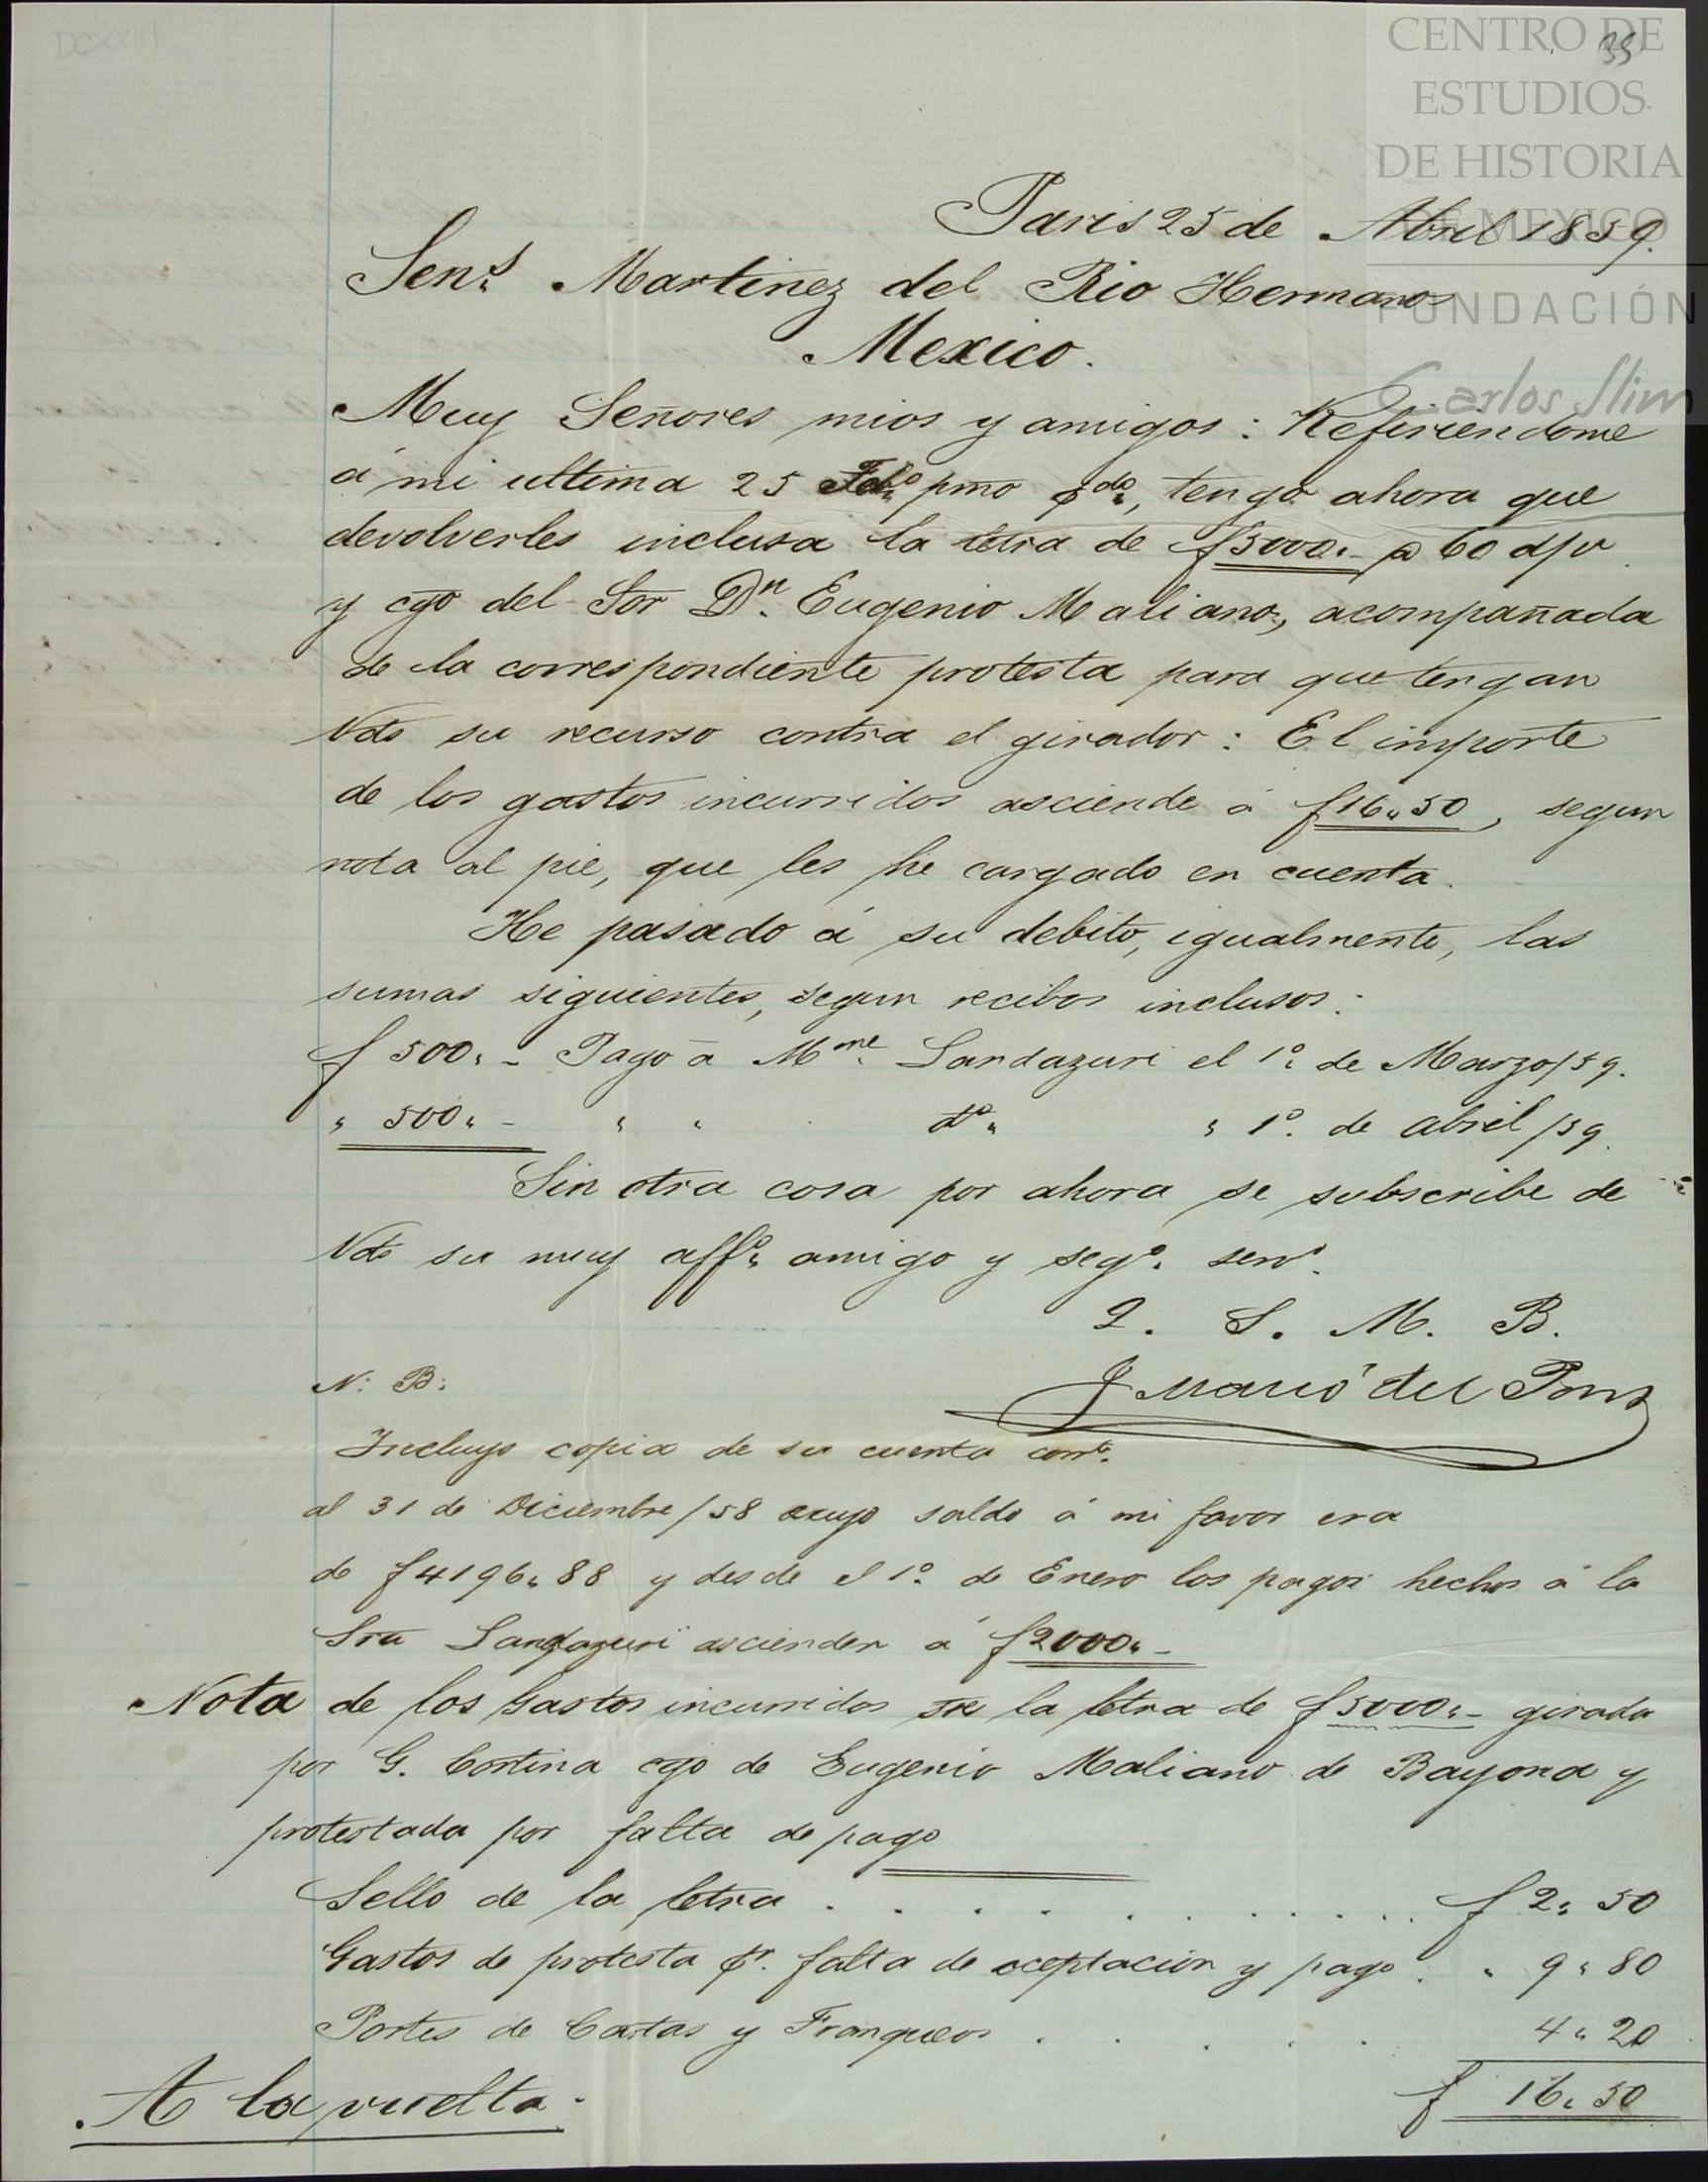 DCXXIII
35
CENTRO DE
ESTUDIOS
DE HISTORIA
DE MEXICO
FUNDACIÓN
Carlos Slim
Paris 25 de Abril 1859.
Sen.s Martinez del Rio Hermanos
Mexico.
Muy Señores mios y amigos: Refiriendome
á mi ultima 25 Feb.o pmo pdo, tengo ahora que
devolverles inclusa la letra de f 5000.- a 60 d/v
y cgo del Sor Dn. Eugenio Maliano, acompañada
de la correspondiente protesta para que tengan
Vds su recurso contra el girador: El importe
de los gastos incurridos asciende á f 16.50, segun
nota al pie, que les he cargado en cuenta.
He pasado á su debito, igualmente, las
sumas siguientes, segun recibos inclusos:
f 500.- Pago á Mme. Landazuri el 1o. de Marzo/59.
" 500.- " " do. " 1o. de abril/59.
Sin otra cosa por ahora se subscribe de
Vds su muy affo. amigo y sego. servo.
Q. S. M. B.
J Mario del Pont
N: B:
Incluyo copia de su cuenta corrte.
al 31 de Diciembre/58 cuyo saldo á mi favor era
de f 4196.88 y desde el 1o. de Enero los pagos hechos á la
Sra Landazuri ascienden á f 2000.-
Nota de los Gastos incurridos la letra de f 5000.- girada
por G. Cortina cgo de Eugenio Maliano de Bayona y
protestada por falta de pago
Sello de la letra . . . . . . . . . . . f 2. 50
Gastos de protesta pr. falta de aceptacion y pago. " 9. 80
Portes de Cartas y Franqueos . . . . . 4. 20
A la vuelta. f 16. 50